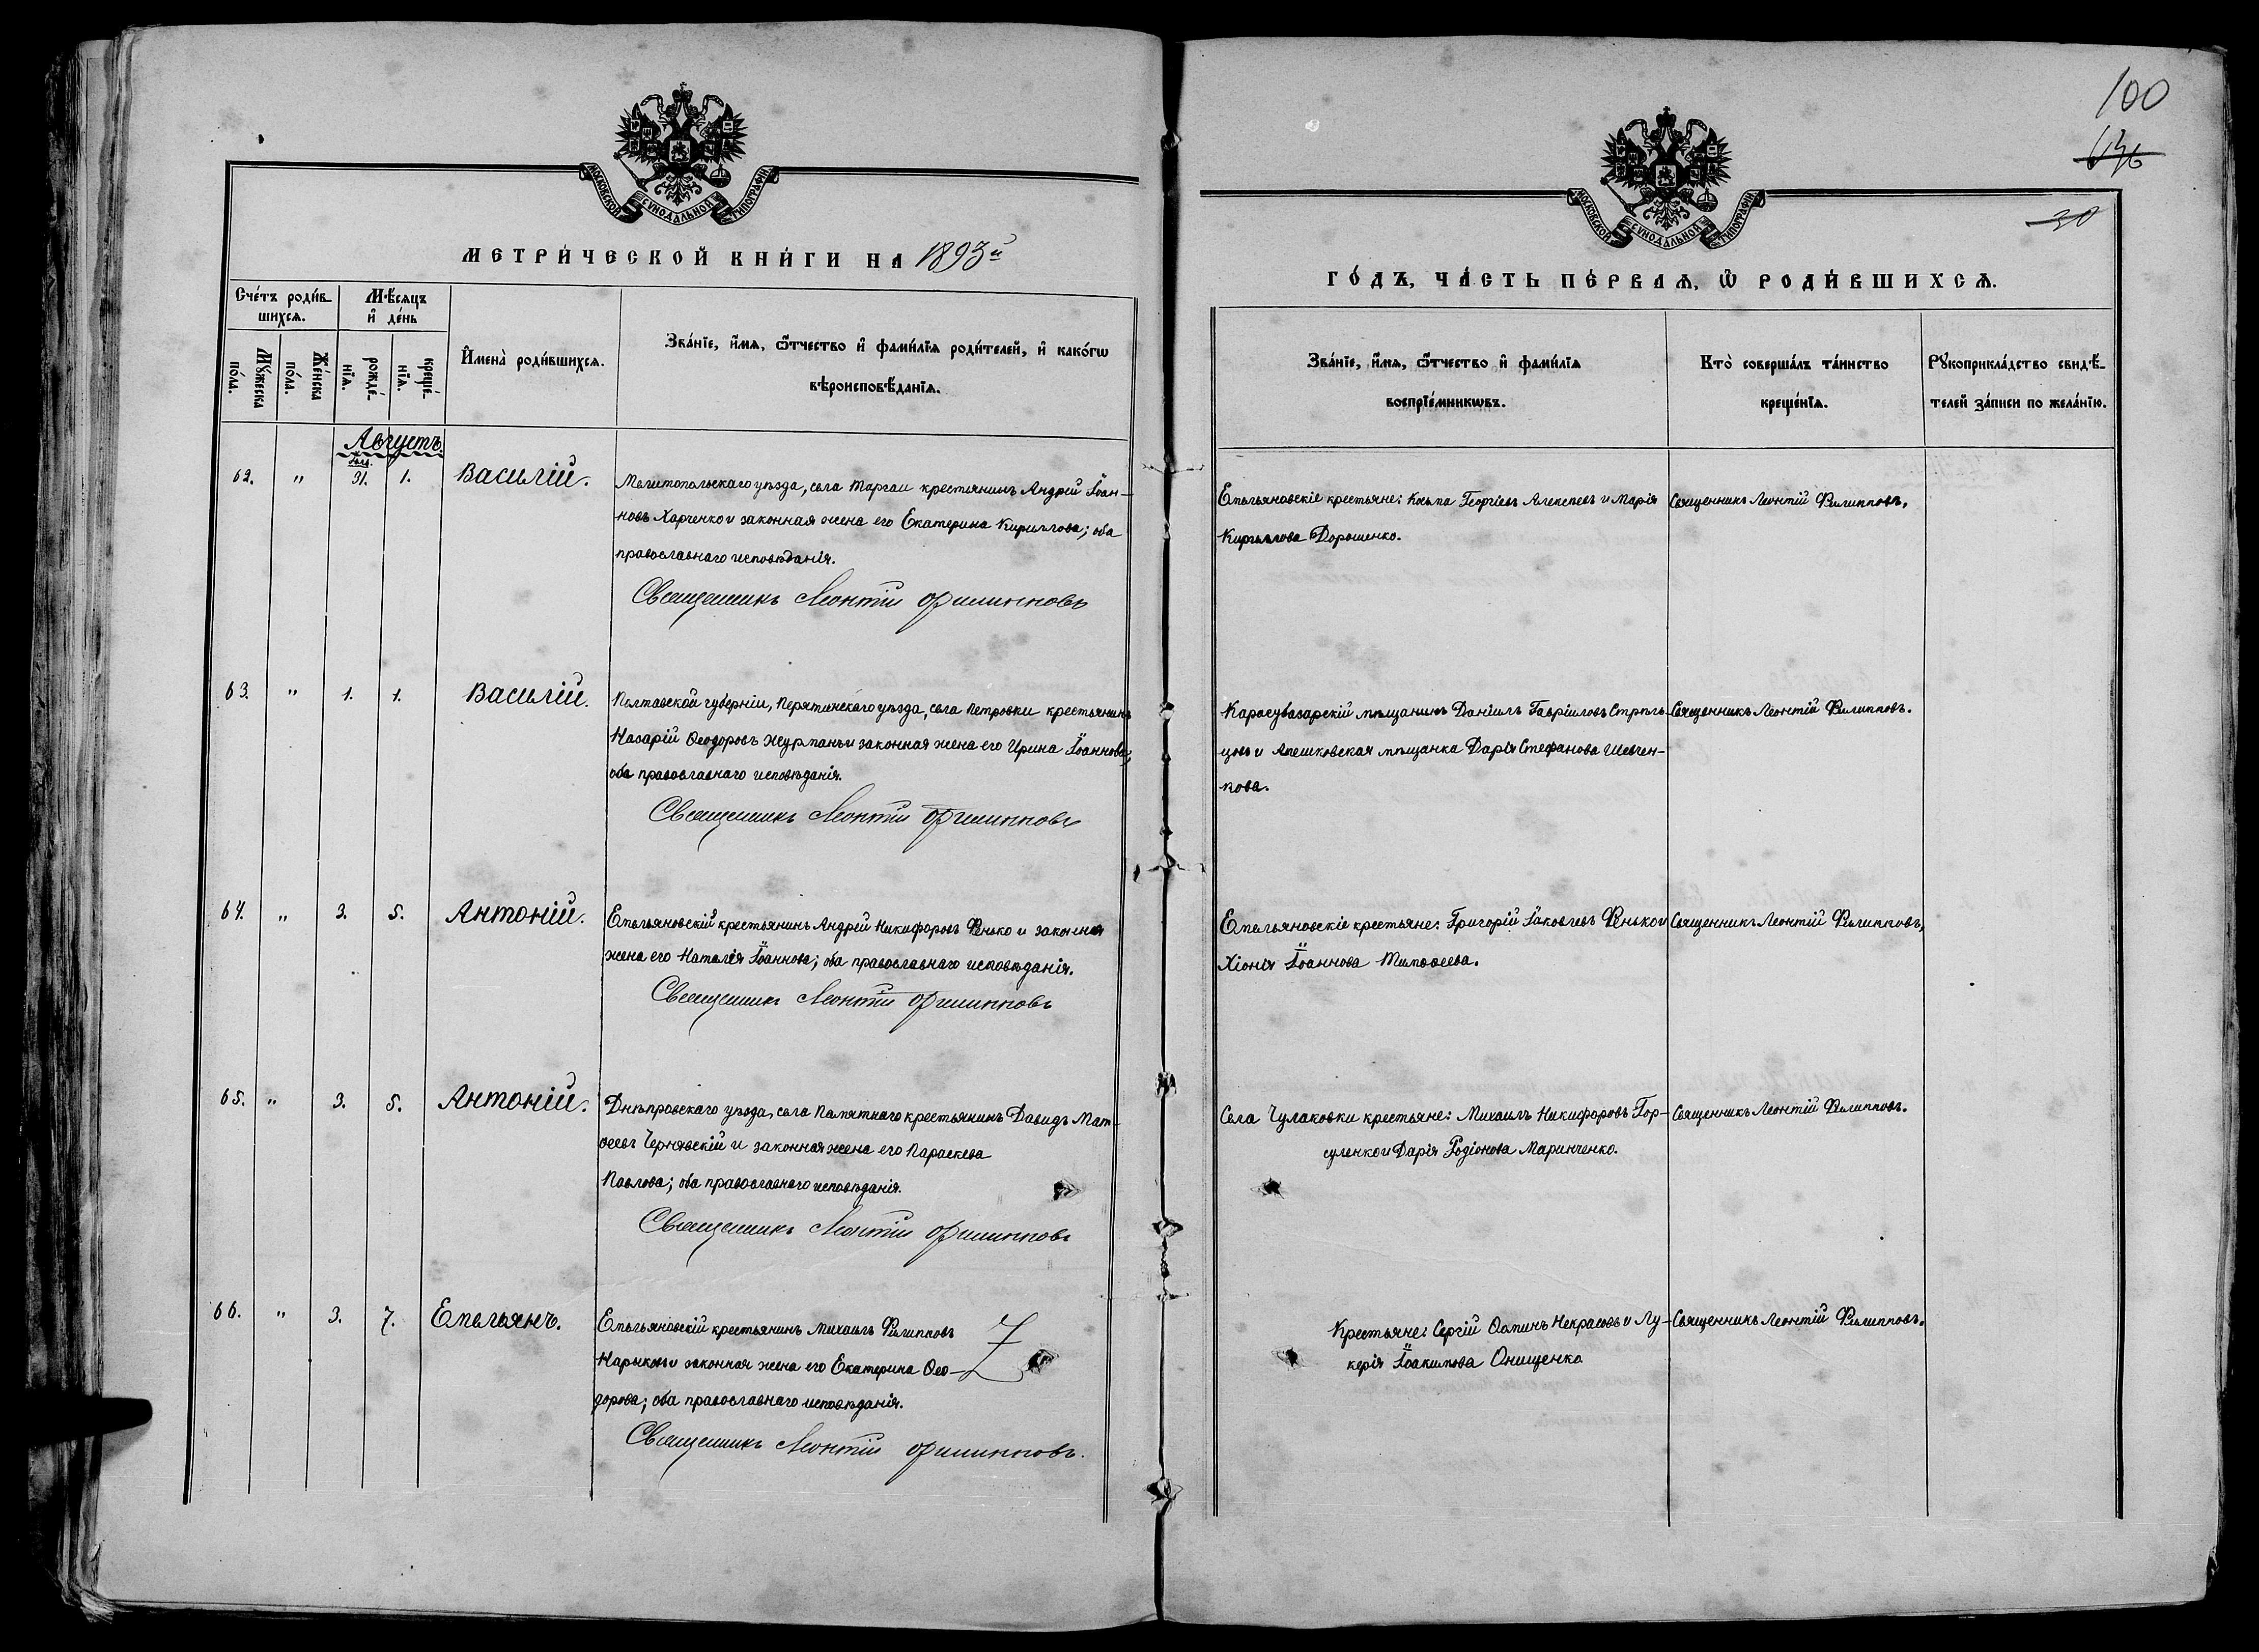 100
30
МОСКОВСКОЙ СѴНОДАЛЬНОЙ ТИПОГРАФІИ
МОСКОВСКОЙ СѴНОДАЛЬНОЙ ТИПОГРАФІИ
МЕТРИ́ЧЕСКОЙ КНИ́ГИ НА 1893й
ГО́ДЪ, ЧА́СТЬ ПЕ́РВАѦ, Ѡ҆ РОДИ́ВШИХСѦ.
Сче́тъ роди́в-
шихсѧ.
Мѣ́сѧцъ
и҆ де́нь
Мꙋ́жеска
по́ла.
Же́нска
по́ла.
рожде́-
нїѧ.
креще́-
нїѧ.
И҆мена̀ роди́вшихсѧ.
Зва́нїе, и҆́мѧ, ѻ҆́тчество и҆ фами́лїѧ роди́телей, и҆ како́гѡ
вѣроисповѣ́данїѧ.
Зва́нїе, и҆́мѧ, ѻ҆́тчество и҆ фами́лїѧ
воспрїе́мникѡвъ.
Кто̀ соверша́лъ та́инство
креще́нїѧ.
Рꙋкоприкла́дство свидѣ́-
телей за́писи по жела́нїю.
Августъ.
62. " 31. 1. Василій.
Мелитопольскаго уѣзда, села Торгаи крестьянинъ Андрей Іоан-
новъ Харченко и законная жена его Екатерина Кириллова; оба
православнаго исповѣданія.
Священникъ Леонтій Филипповъ
Емельяновскіе крестьяне: Косьма Георгіевъ Алексѣевъ и Марія
Кириллова Дорошенко.
Священникъ Леонтій Филипповъ.
63. " 1. 1. Василій.
Полтавской губерніи, Перятинскаго уѣзда, села Петровки крестьянинъ
Назарій Ѳеодоровъ Журманъ и законная жена его Ирина Іоаннова;
оба православнаго исповѣданія.
Священникъ Леонтій Филипповъ
Карасубазарскій мѣщанинъ Даніилъ Гавріиловъ Стрѣль-
цовъ и Алешковская мѣщанка Дарія Стефанова Шевчен-
кова.
Священникъ Леонтій Филипповъ.
64. " 3. 5. Антоній.
Емельяновскій крестьянинъ Андрей Никифоровъ Фенько и законная
жена его Наталія Іоаннова; оба православнаго исповѣданія.
Священникъ Леонтій Филипповъ
Емельяновскіе крестьяне: Григорій Іаковлевъ Фенько и
Хіонія Іоаннова Тимоѳеева.
Священникъ Леонтій Филипповъ,
65. " 3. 5. Антоній.
Днѣпровскаго уѣзда, села Памятнаго крестьянинъ Давидъ Мат-
ѳеевъ Чернявскій и законная жена его Параскева
Павлова; оба православнаго исповѣданія.
Священникъ Леонтій Филипповъ
Села Чулаковки крестьяне: Михаилъ Никифоровъ Гор-
суленко и Дарія Родіонова Маринченко.
Священникъ Леонтій Филипповъ.
66. " 3. 7. Емельянъ.
Емельяновскій крестьянинъ Михаилъ Филипповъ
Нарыковъ и законная жена его Екатерина Ѳео-
дорова; оба православнаго исповѣданія.
Священникъ Леонтій Филипповъ.
Крестьяне: Сергій Ѳоминъ Некрасовъ и Лу-
керія Іоакимова Онищенко
Священникъ Леонтій Филипповъ.